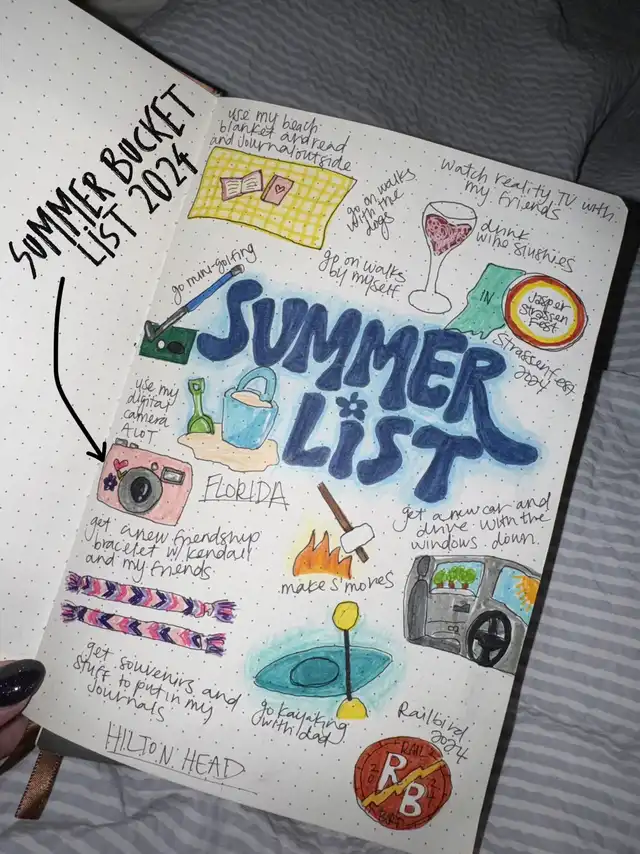 SUMMER BUCKET
LIST 2024
use my beach
blanket and read
and journal outside
go on walks
with the
dogs
watch reality TV with
my friends
drink
wine slushies
go on walks
by myself
go mini-golfing
IN
Jasper
Strassen
Fest
Strassenfest
2024
SUMMER
LIST
use my
digital
camera
A LOT
FLORIDA
get a new friendship
bracelet w/ kendall
and my friends
make s'mores
get a new car and
drive with the
windows down.
get souvenirs and
stuff to put in my
journals
go kayaking
with dad
Railbird
2024
RAIL
20
RB
24
HILTON HEAD